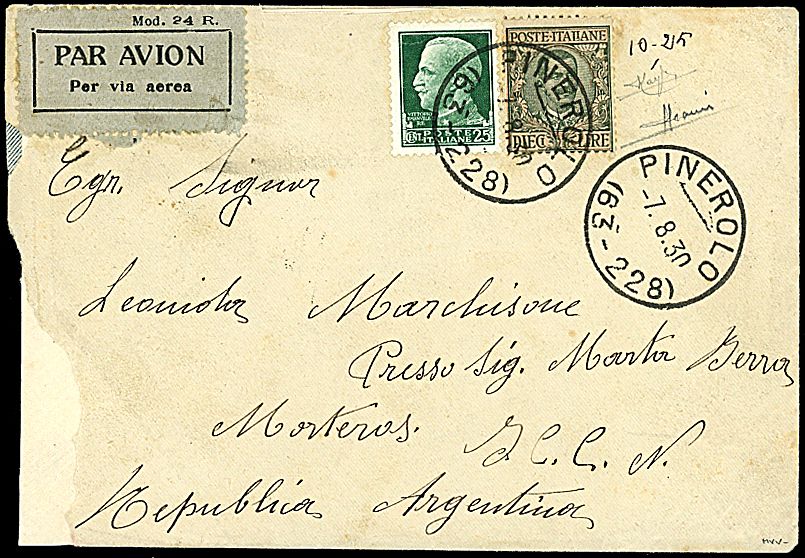 Mod. 24 R.
PAR AVION
Per via aerea
VITTORIO
EMANUELE
CENT. POSTE 25
ITALIANE
POSTE·ITALIANE
DIECI LIRE
PINEROLO
(63-228)
10-25
PINEROLO
-7.8.30
(63-228)
Egr. Signor
Leonida Marchisone
Presso Sig. Marta Berra
Morteros. F.C.C.N.
Republica Argentina